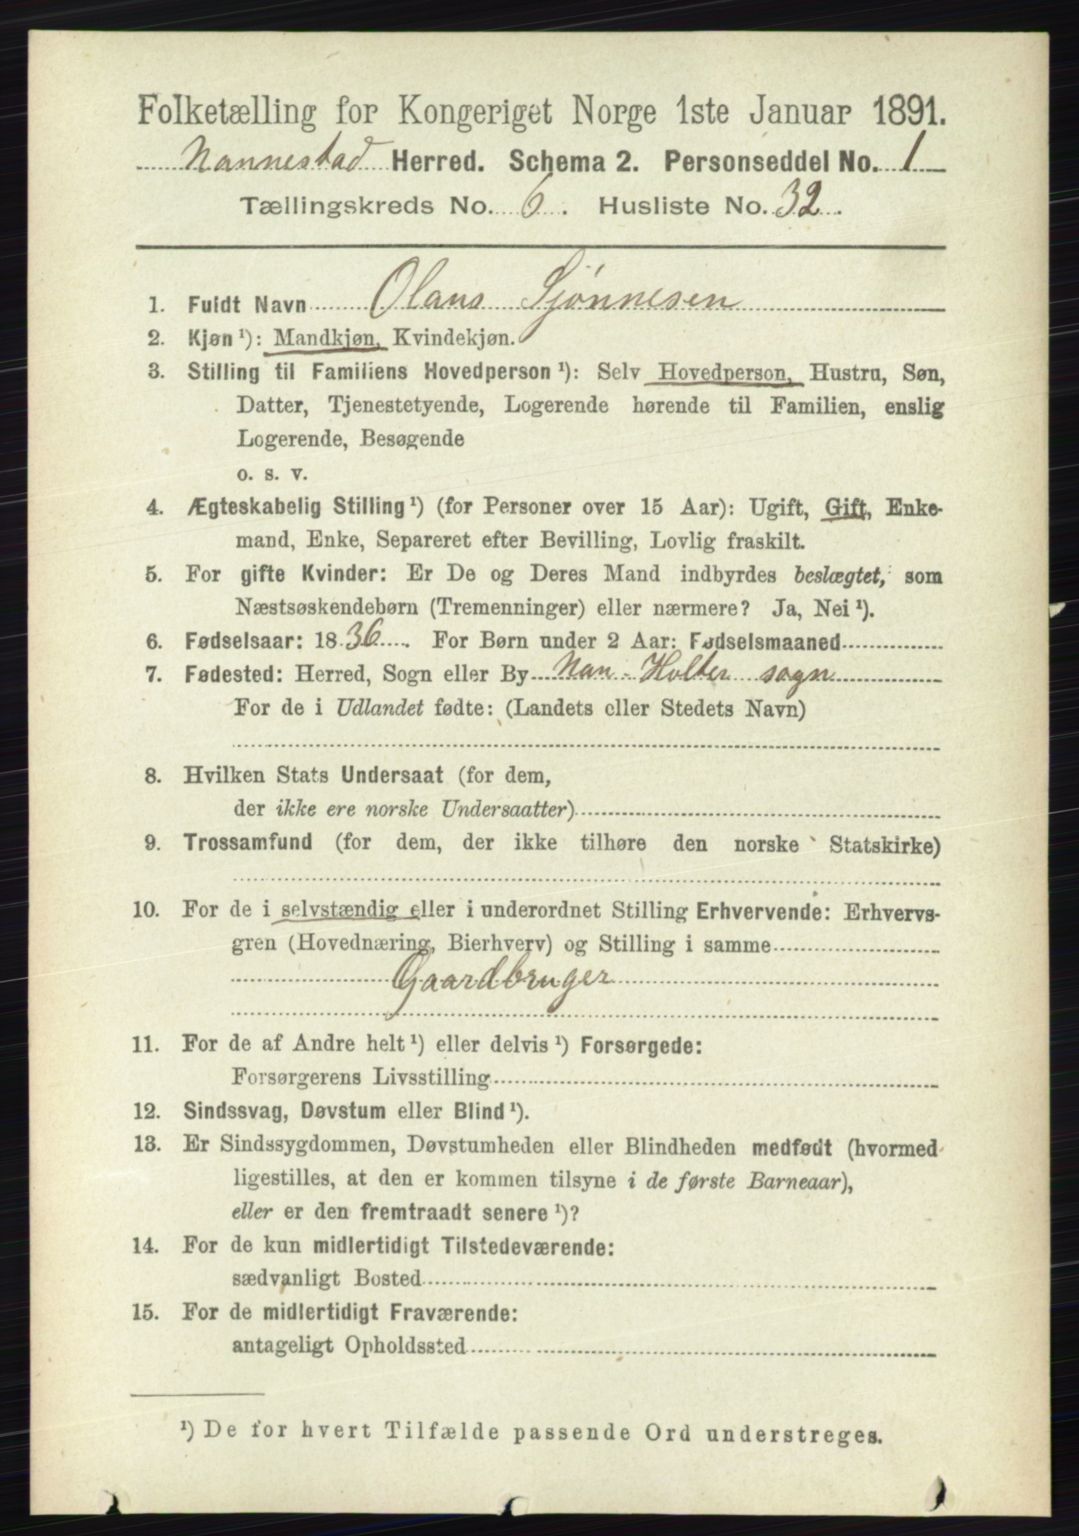 Folketælling for Kongeriget Norge 1ste Januar 1891.
Nannestad Herred. Schema 2. Personseddel No. 1
Tællingskreds No. 6. Husliste No. 32.
1. Fuldt Navn Olaus Sjønnesen
2. Kjøn ¹): Mandkjøn, Kvindekjøn.
3. Stilling til Familiens Hovedperson ¹): Selv Hovedperson, Hustru, Søn,
Datter, Tjenestetyende, Logerende hørende til Familien, enslig
Logerende, Besøgende
o. s. v.
4. Ægteskabelig Stilling ¹) (for Personer over 15 Aar): Ugift, Gift, Enke-
mand, Enke, Separeret efter Bevilling, Lovlig fraskilt.
5. For gifte Kvinder: Er De og Deres Mand indbyrdes beslægtet, som
Næstsøskendebørn (Tremenninger) eller nærmere? Ja, Nei ¹).
6. Fødselsaar: 1836. For Børn under 2 Aar: Fødselsmaaned
7. Fødested: Herred, Sogn eller By Nan - Holter sogn
For de i Udlandet fødte: (Landets eller Stedets Navn)
8. Hvilken Stats Undersaat (for dem,
der ikke ere norske Undersaatter)
9. Trossamfund (for dem, der ikke tilhøre den norske Statskirke)
10. For de i selvstændig eller i underordnet Stilling Erhvervende: Erhvervs-
gren (Hovednæring, Bierhverv) og Stilling i samme
Gaardbruger
11. For de af Andre helt ¹) eller delvis ¹) Forsørgede:
Forsørgerens Livsstilling
12. Sindssvag, Døvstum eller Blind ¹).
13. Er Sindssygdommen, Døvstumheden eller Blindheden medfødt (hvormed
ligestilles, at den er kommen tilsyne i de første Barneaar),
eller er den fremtraadt senere ¹)?
14. For de kun midlertidigt Tilstedeværende:
sædvanligt Bosted
15. For de midlertidigt Fraværende:
antageligt Opholdssted
¹) De for hvert Tilfælde passende Ord understreges.